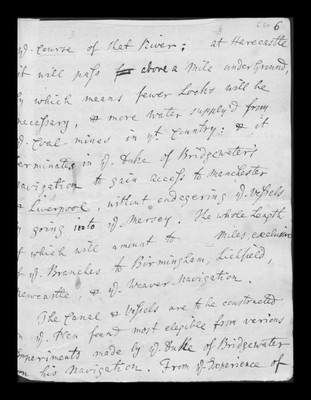 6
yͩ. Course of that River; at Harecastle
it will pass above a Mile under Ground,
by which means fewer Locks will be
necessary, & more Water supply'd from
yͩ. Coal mines in yt. Country: & it
terminates in yͤ. Duke of Bridgewater's
navigation to gain access to Manchester
& Liverpool, without endagering yͤ. Vessels
by going into yͤ. Mersey. The whole Length
of which will amount to Miles, exclusive
of yͤ. Branches to Birmingham, Lichfield,
Newcastle, & yͤ. Weaver Navigation.
The Canal & Vessels are to be constructed
on yͤ. Plan found most elegible from various
Experiments made by yͤ. Duke of Bridgewater
on his Navigation. From yͤ. Experience of